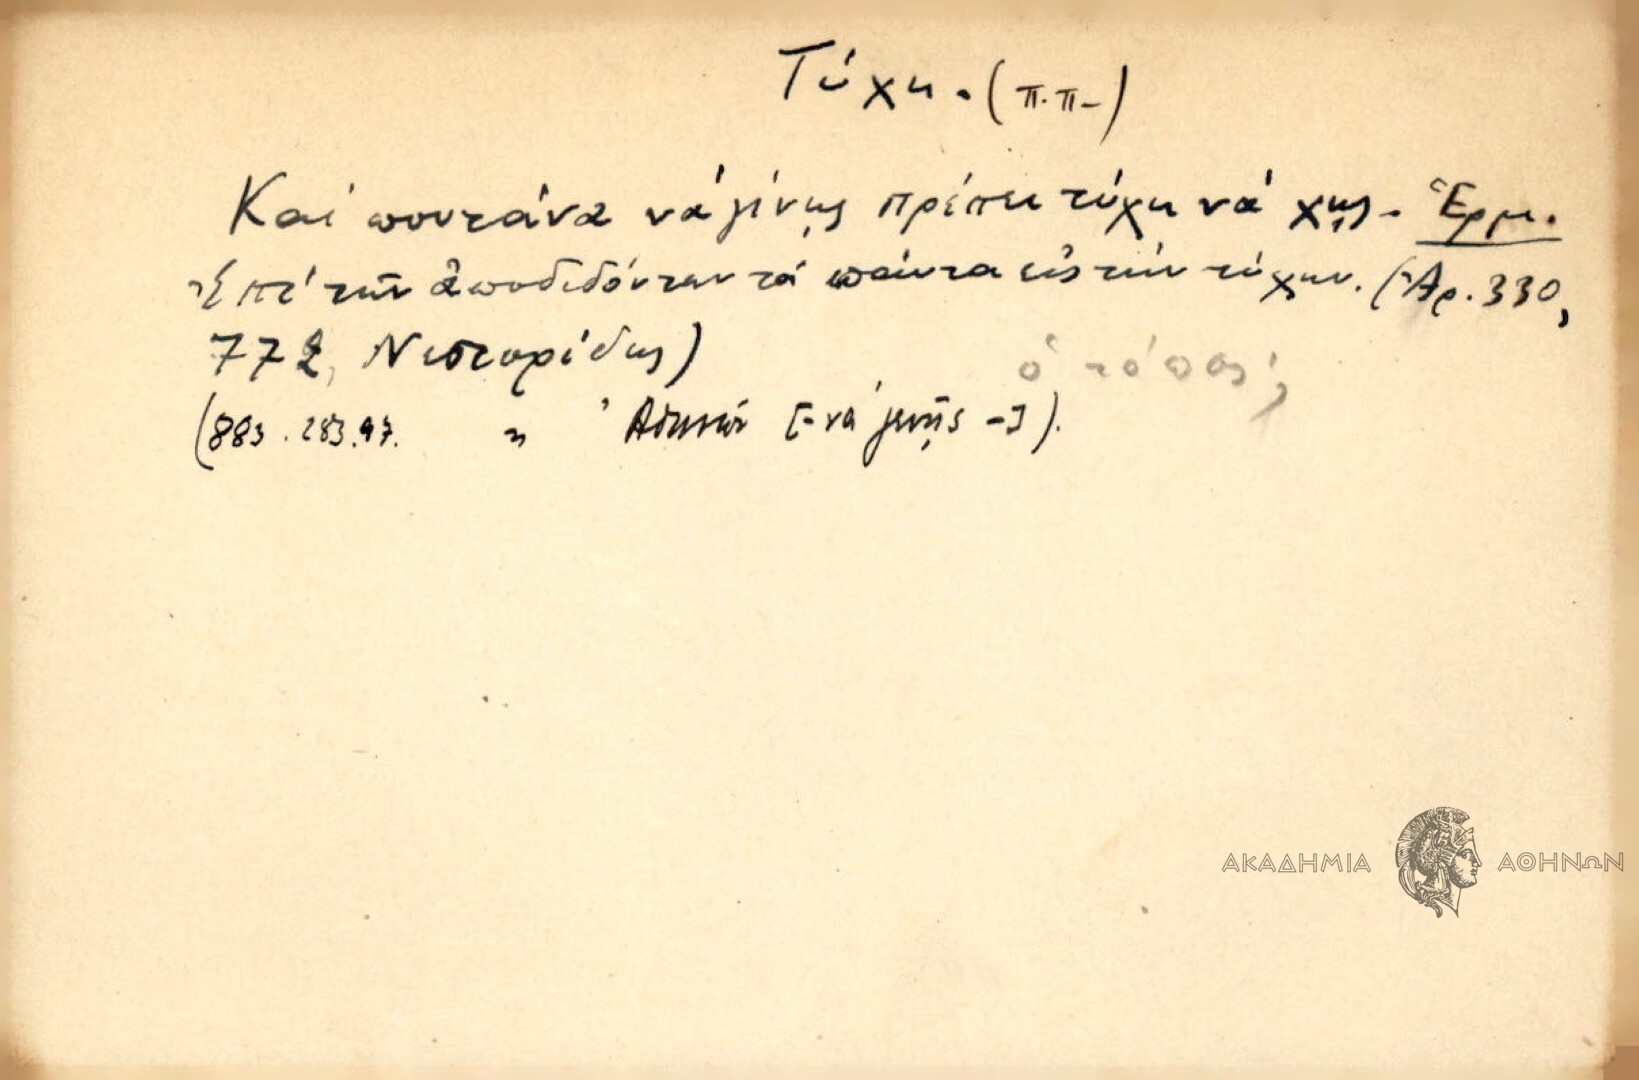 Τύχη. (π.π-)
Καί πουτάνα νά γίνῃς πρέπει τύχη νά χῃς. Ἑρμ.
Ἐπί τῶν ἀποδιδόντων τά πάντα εἰς τήν τύχην. (Ἀρ. 330,
772, Νεστορίδης)
ὁ τόπος;
(883. 283.97. " Ἀθηνῶν [-νά γενῇς -]).
ΑΚΑΔΗΜΙΑ ΑΘΗΝΩΝ